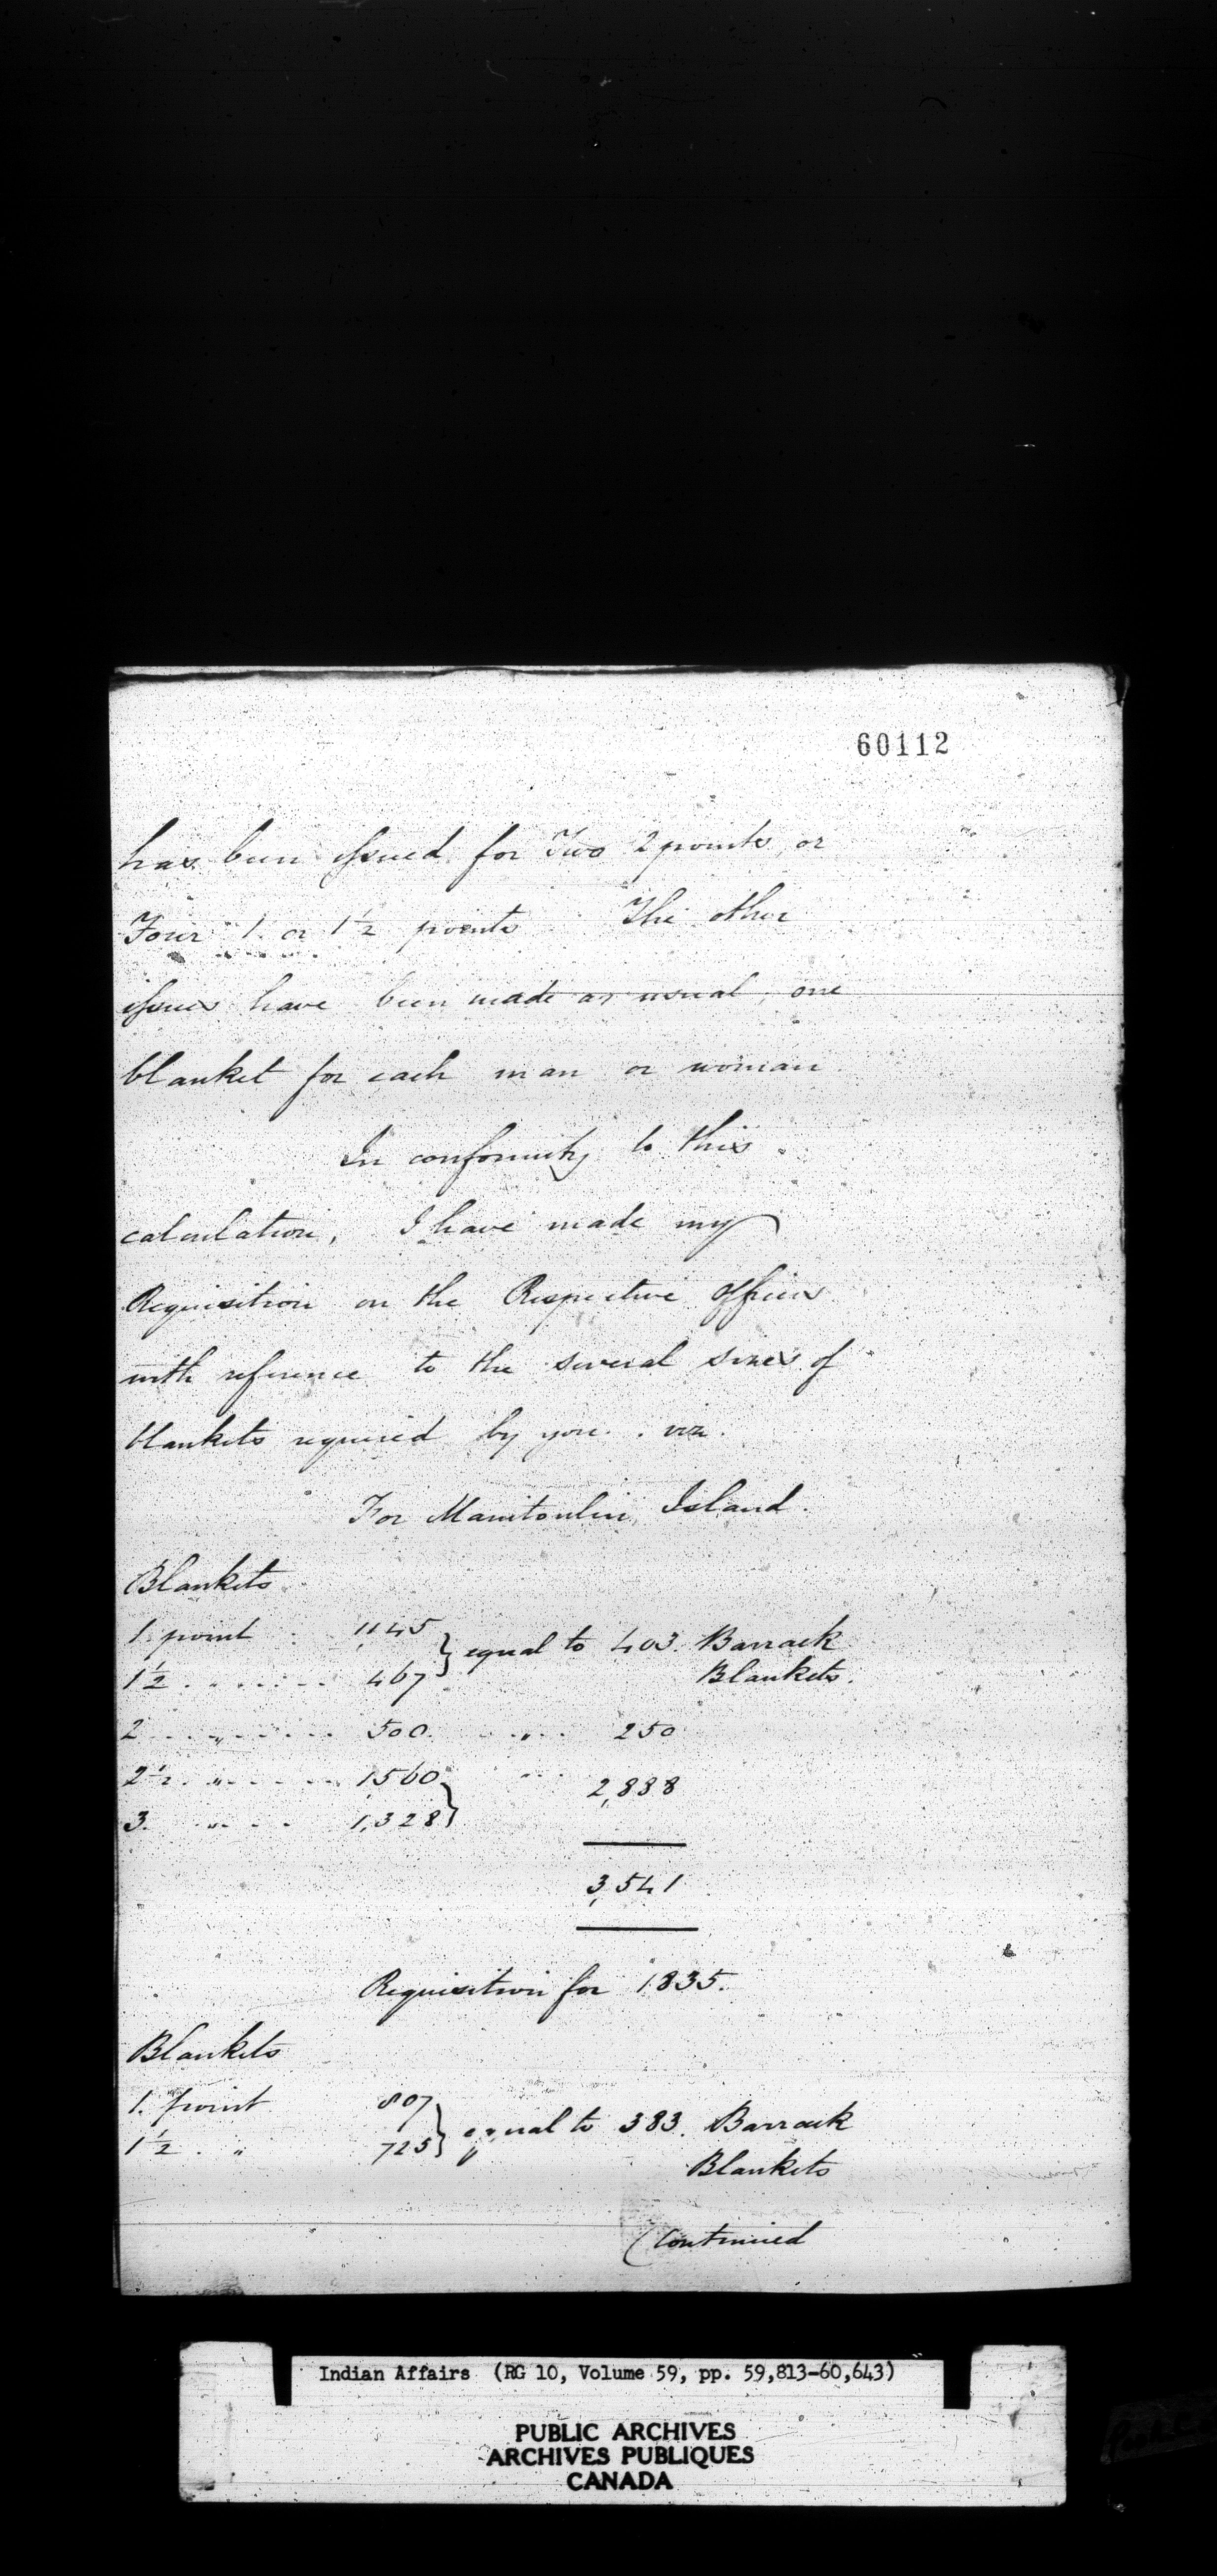 60112
has been issued for Two 2 points, or
Four 1. or 1½ points The other
issues have been made as usual, one
blanket for each man or woman
In conformity to this
calculation, I have made my
Requisition on the Respective Officers
with reference to the several sizes of
blankets required by you. viz.
For Manitoulin Island.
Blankets
1. point 1145 } equal to 403. Barrack
1½ . „ 467 Blankets.
2 „ 500. „ 250
2½ „ 1,560 } 2,888
3. „ 1,328
3,541
Requisition for 1835.
Blankets
1. point 807 } equal to 383. Barrack
1½ . „ 725 Blankets
(Continued
Indian Affairs (RG 10, Volume 59, pp. 59,813-60,643)
PUBLIC ARCHIVES
ARCHIVES PUBLIQUES
CANADA